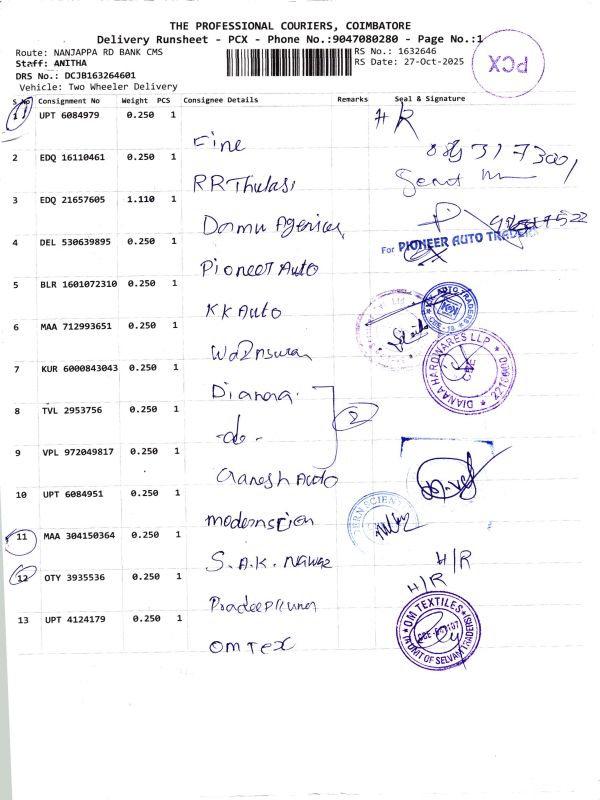 THE PROFESSIONAL COURIERS, COIMBATORE
Delivery Runsheet - PCX - Phone No.:9047080280 - Page No.:1
Route: NANJAPPA RD BANK CMS
RS No.: 1632646
Staff: ANITHA
RS Date: 27-Oct-2025
DRS No.: DCJB163264601
Vehicle: Two Wheeler Delivery
PCX
S No Consignment No Weight PCS Consignee Details Remarks Seal & Signature
1 UPT 6084979 0.250 1 Fine H/R
2 EDQ 16110461 0.250 1 RR Thulasi
3 EDQ 21657605 1.110 1 Damu Agencies
4 DEL 530639895 0.250 1 Pioneer Auto
For PIONEER AUTO TRADERS
5 BLR 1601072310 0.250 1 KK Auto
6 MAA 712993651 0.250 1
7 KUR 6000843043 0.250 1 Dianaa
DIANAA HARDWARES LLP
8 TVL 2953756 0.250 1 -do-
2
9 VPL 972049817 0.250 1 Ganesh Auto
10 UPT 6084951 0.250 1
11 MAA 304150364 0.250 1 S.A.K. Nawaz H/R
12 OTY 3935536 0.250 1 H/R
13 UPT 4124179 0.250 1 OM TEX
OM TEXTILES